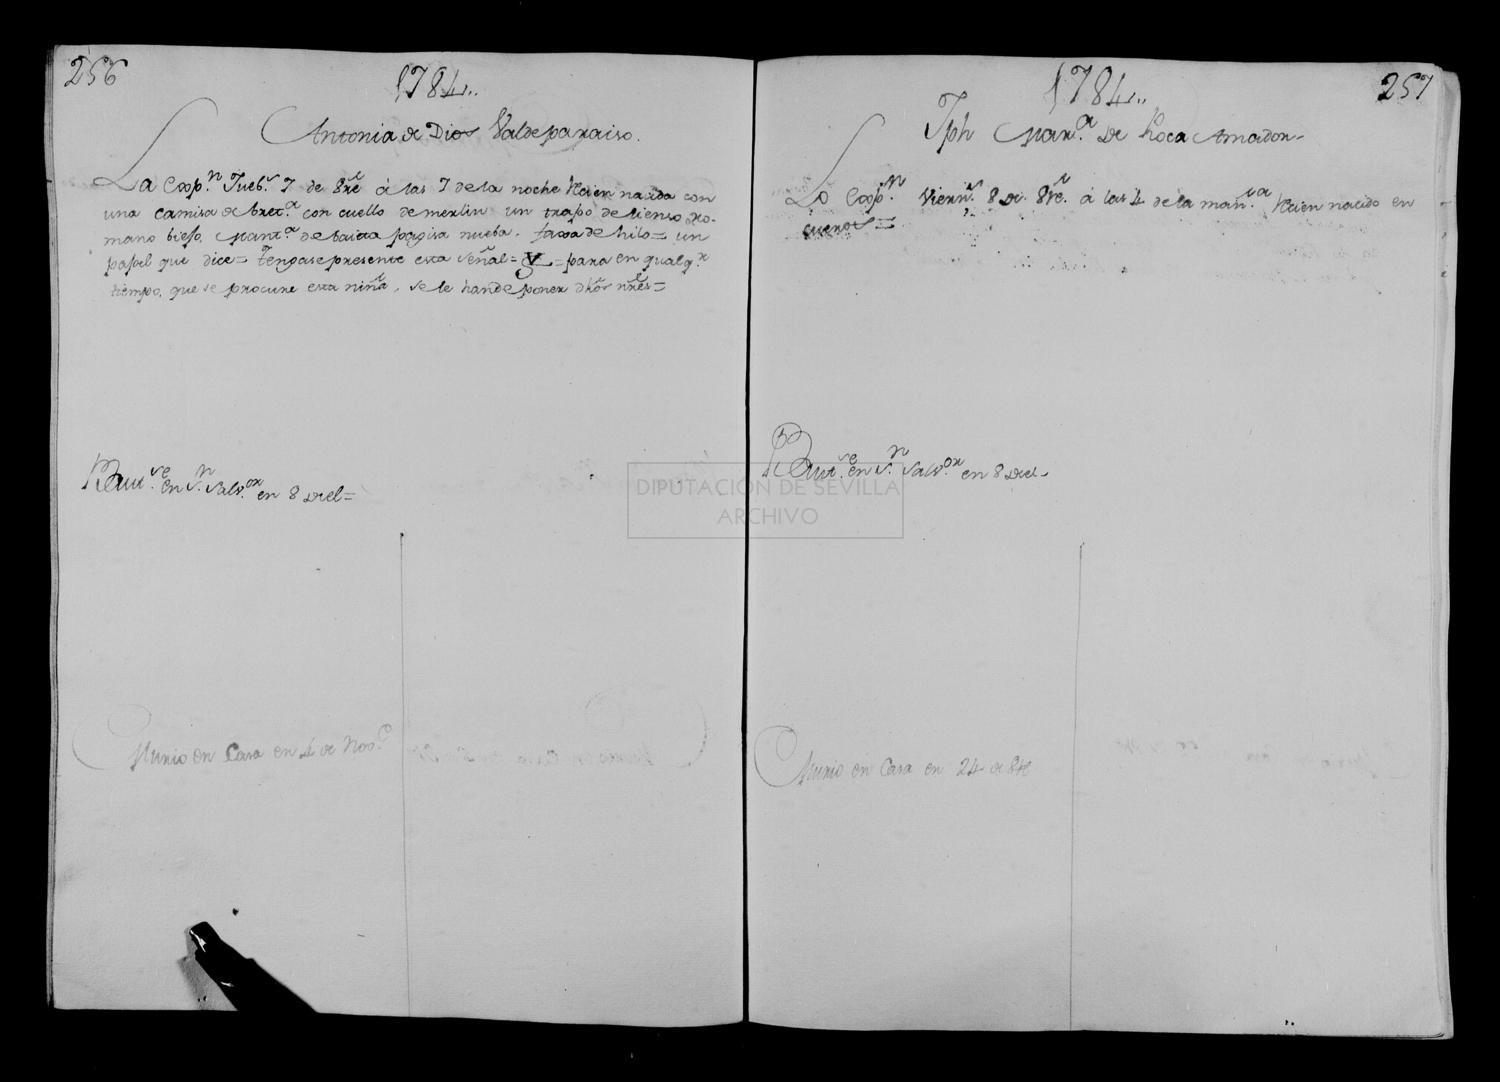 256
1784..
Antonia de Dios Valdeparaiso.
La Cosp.n Jueb.s 7 de 8re á las 7 de la noche Rezien nacida con
una camisa de bret.a con cuello de merlin un trapo de lienso ro-
mano biejo. Mant.a de baieta pagisa nueba. faxa de hilo = un
papel que dice = Tengase presente esta señal = = para en qualq.r
tiempo, que se procure esta niña, se le hande poner dhos nres =
Baut.se en S.n Salv.or en 8 Del =
Murio en Casa en 4 de Nov.e
1784..
257
Jph Mar.a de Roca Amador-
Lo Cosp.n Viern.s 8 de 8re á las 4 de la mañ.na Rezien nacido en
cueros =
Baut.se en S.n Salv.or en 8 Del-
Murio en Casa en 24 de 8re
DIPUTACIÓN DE SEVILLA
ARCHIVO